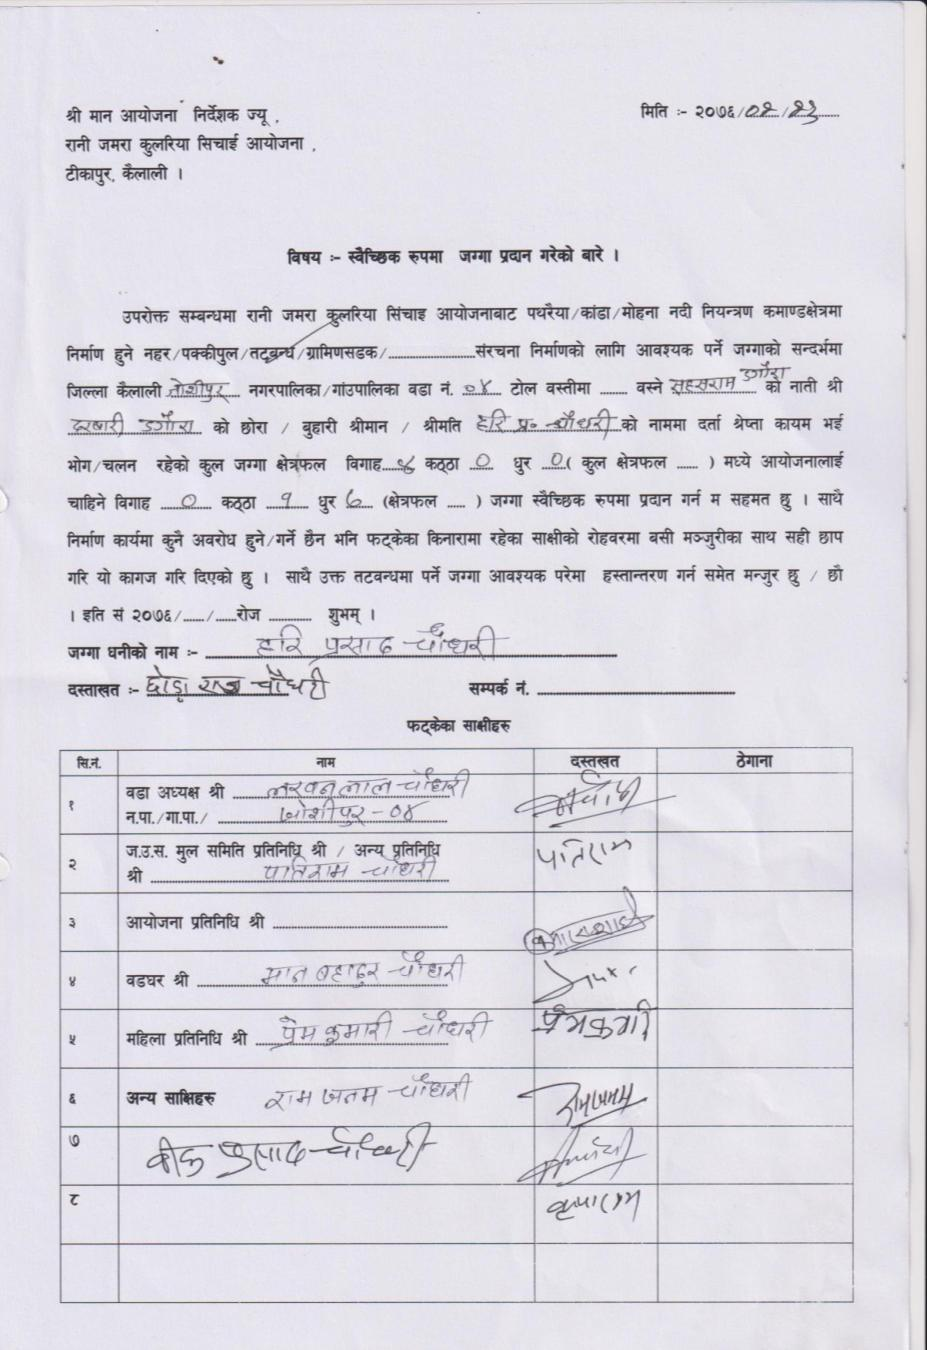 श्री मान आयोजना निर्देशक ज्यू ,
मिति :- २०७६/०२/२३
रानी जमरा कुलरिया सिचाई आयोजना ,
टीकापुर, कैलाली ।
विषय :- स्वैच्छिक रुपमा जग्गा प्रदान गरेको बारे ।
उपरोक्त सम्बन्धमा रानी जमरा कुलरिया सिंचाइ आयोजनाबाट पथरैया/कांडा/मोहना नदी नियन्त्रण कमाण्डक्षेत्रमा
निर्माण हुने नहर/पक्कीपुल/तटबन्ध/ग्रामिणसडक/..................संरचना निर्माणको लागि आवश्यक पर्ने जग्गाको सन्दर्भमा
जिल्ला कैलाली जोशीपुर नगरपालिका/गांउपालिका वडा नं. ०४ टोल वस्तीमा ...... वस्ने सहसराम डगौरा को नाती श्री
दरबारी डगौरा को छोरा / बुहारी श्रीमान / श्रीमति हरि प्र० चौधरी को नाममा दर्ता श्रेष्ता कायम भई
भोग/चलन रहेको कुल जग्गा क्षेत्रफल विगाह कठ्ठा ० धुर ० ( कुल क्षेत्रफल ...... ) मध्ये आयोजनालाई
चाहिने विगाह ० कठ्ठा १ धुर ७ (क्षेत्रफल ..... ) जग्गा स्वैच्छिक रुपमा प्रदान गर्न म सहमत छु । साथै
निर्माण कार्यमा कुनै अवरोध हुने/गर्ने छैन भनि फट्केका किनारामा रहेका साक्षीको रोहवरमा बसी मञ्जुरीका साथ सही छाप
गरि यो कागज गरि दिएको छु । साथै उक्त तटवन्धमा पर्ने जग्गा आवश्यक परेमा हस्तान्तरण गर्न समेत मन्जुर छु / छौ
। इति सं २०७६/....../......रोज ............ शुभम् ।
जग्गा धनीको नाम :- हरि प्रसाद चौधरी
दस्ताखत :- राज चौधरी सम्पर्क नं. ..................
फट्केका साक्षीहरु
सि.नं. नाम दस्तखत ठेगाना
१ वडा अध्यक्ष श्री लखनलाल चौधरी
न.पा./गा.पा./ जोशीपुर - ०४
२ ज.उ.स. मुल समिति प्रतिनिधि श्री / अन्य प्रतिनिधि
श्री पातिराम चौधरी पातिराम
३ आयोजना प्रतिनिधि श्री ..................
४ वडघर श्री मान बहादुर चौधरी
५ महिला प्रतिनिधि श्री प्रेम कुमारी चौधरी
६ अन्य साक्षिहरु राम जनम चौधरी रामजनम
७ प्रसाद चौधरी
८ कृपाराम